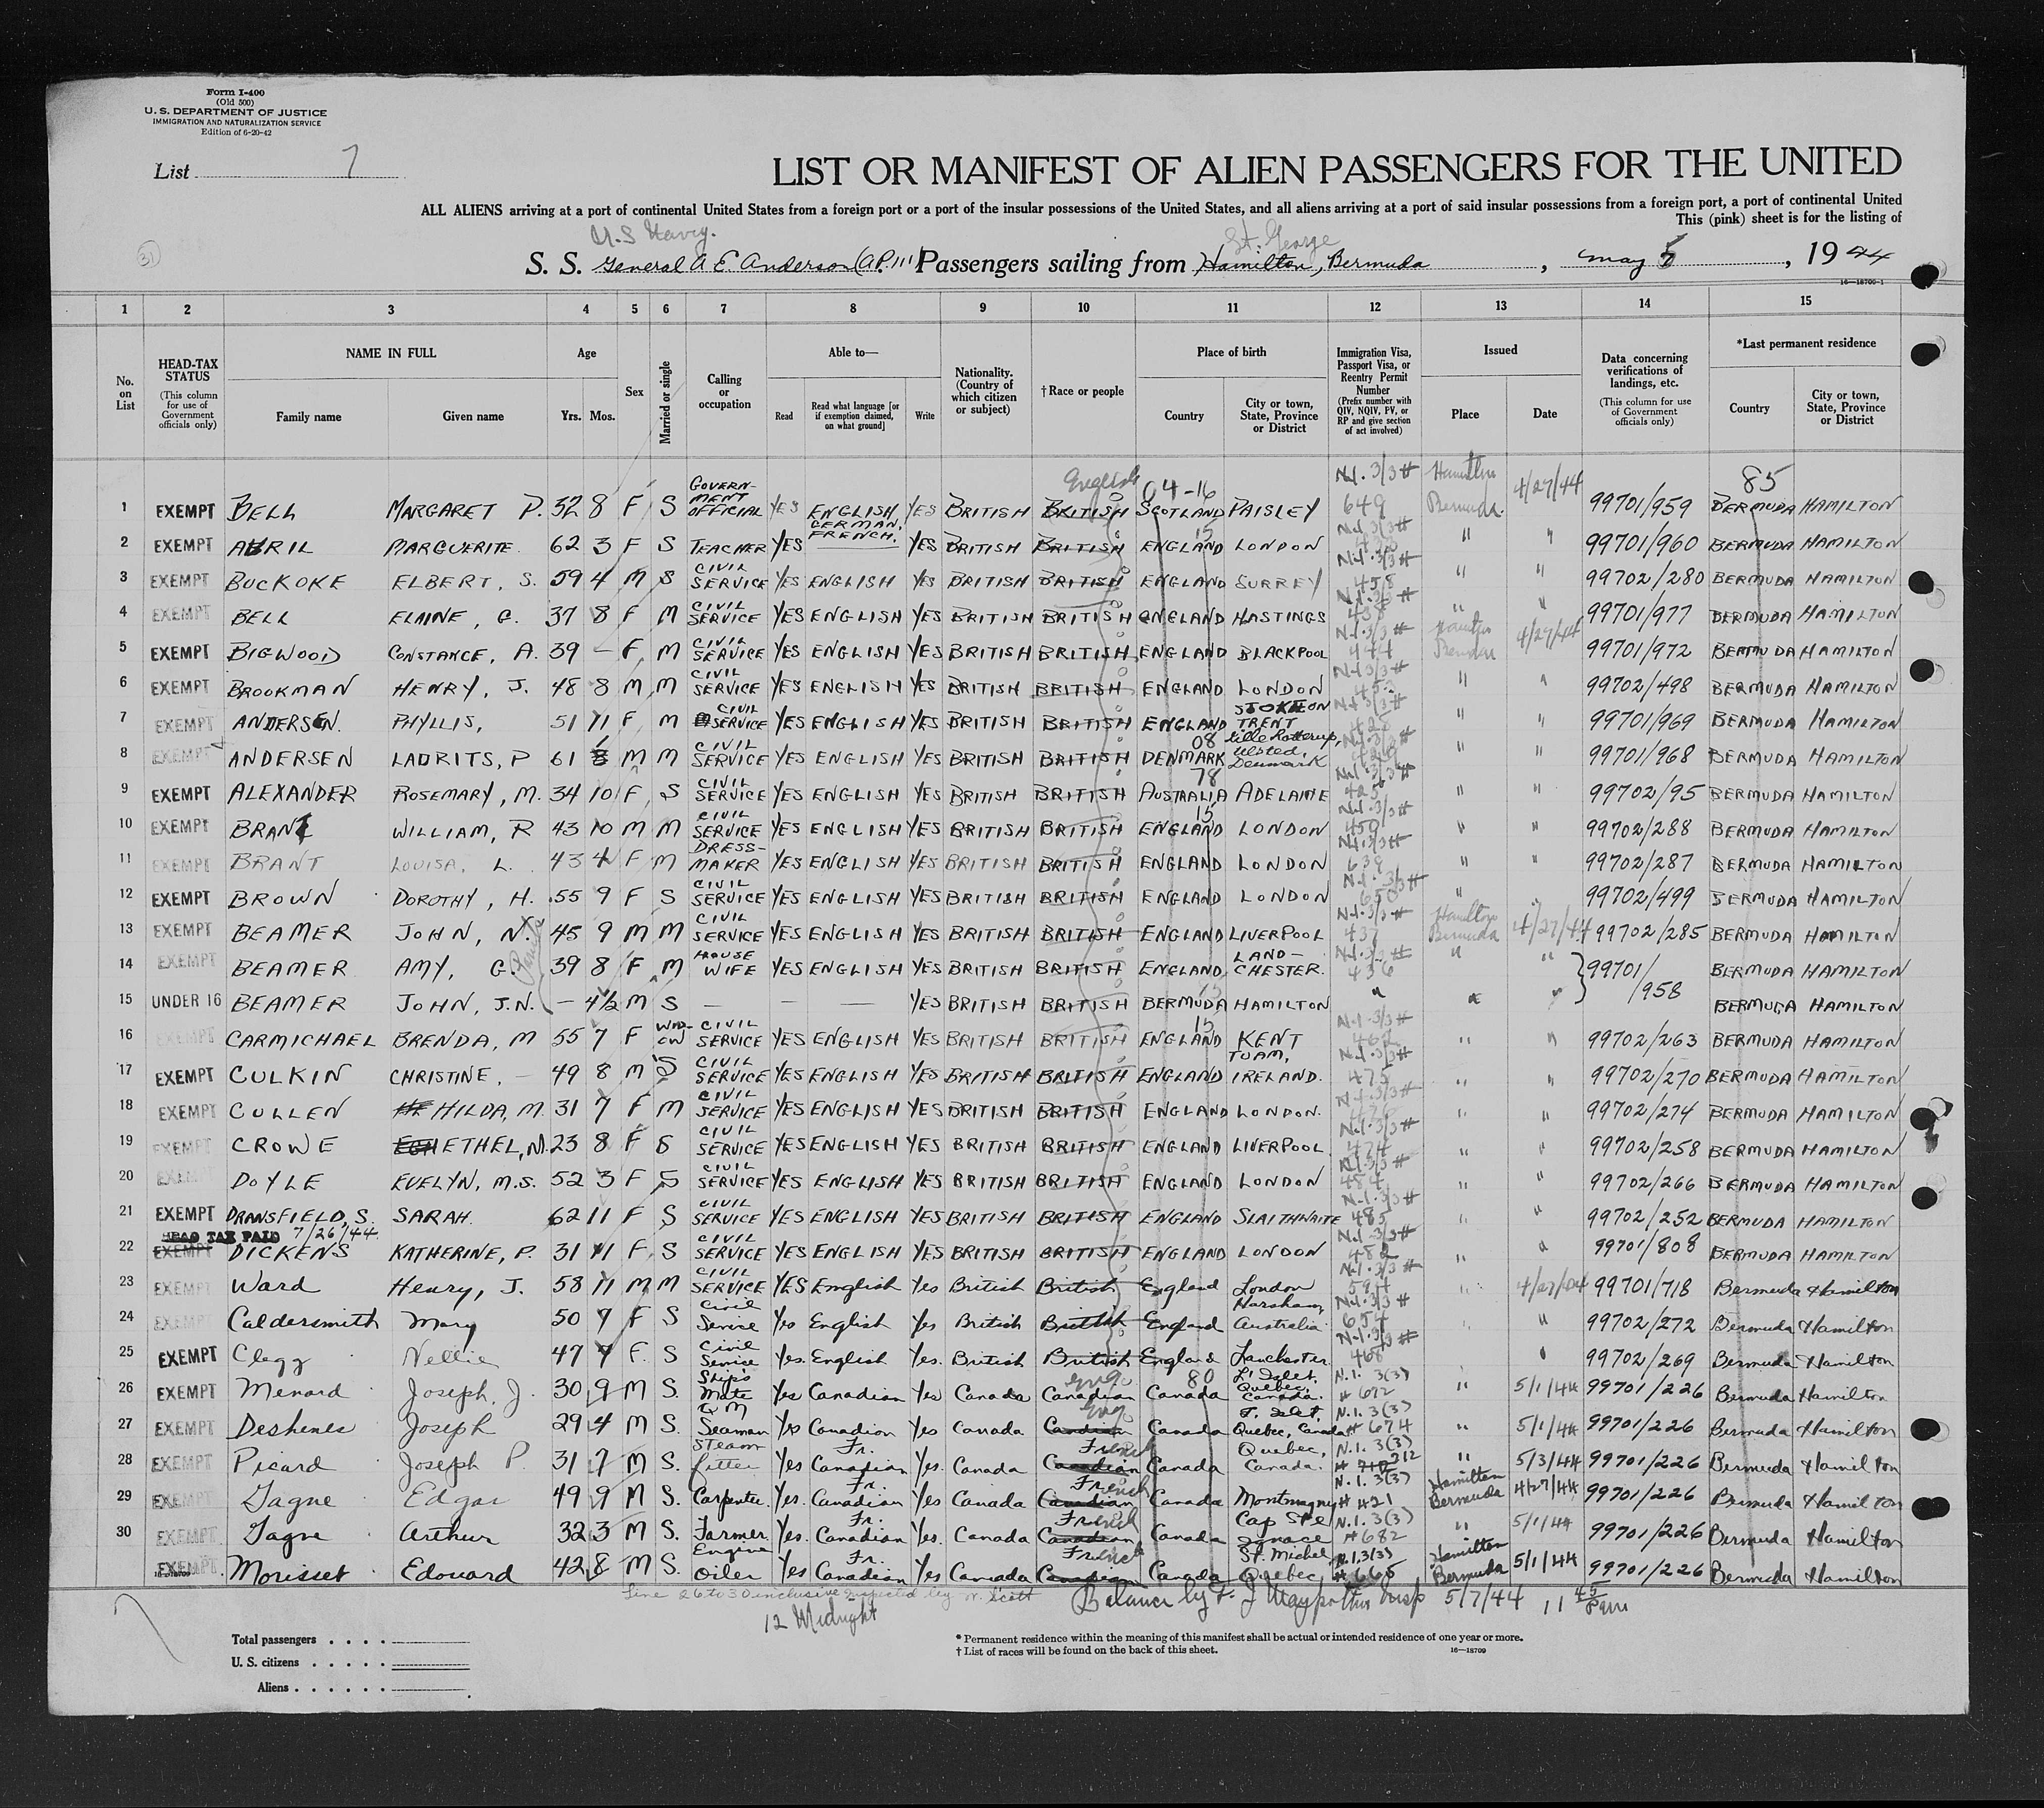 Form I-400
(Old 500)
U. S. DEPARTMENT OF JUSTICE
IMMIGRATION AND NATURALIZATION SERVICE
Edition of 6-20-42
List 7
LIST OR MANIFEST OF ALIEN PASSENGERS FOR THE UNITED
ALL ALIENS arriving at a port of continental United States from a foreign port or a port of the insular possessions of the United States, and all aliens arriving at a port of said insular possessions from a foreign port, a port of continental United
This (pink) sheet is for the listing of
U.S Navy. St. George
S. S. General A E. Anderson (AP.111) Passengers sailing from Hamilton, Bermuda, May 5, 1944
16—18700-1
1 2 3 4 5 6 7 8 9 10 11 12 13 14 15
No. on List
HEAD-TAX STATUS
(This column for use of Government officials only)
NAME IN FULL
Family name Given name
Age
Yrs. Mos.
Sex
Married or single
Calling or occupation
Able to—
Read
Read what language [or if exemption claimed, on what ground]
Write
Nationality. (Country of which citizen or subject)
† Race or people
Place of birth
Country
City or town, State, Province or District
Immigration Visa, Passport Visa, or Reentry Permit Number
(Prefix number with QIV, NQIV, PV, or RP and give section of act involved)
Issued
Place Date
Data concerning verifications of landings, etc.
(This column for use of Government officials only)
*Last permanent residence
Country
City or town, State, Province or District
English 04-16 N.I. 3/3 # Hamilton Bermuda 4/27/44 85
1 EXEMPT BELL MARGARET P. 32 8 F S GOVERNMENT OFFICIAL YES ENGLISH YES BRITISH BRITISH SCOTLAND PAISLEY 649 99701/959 BERMUDA HAMILTON
2 EXEMPT ABRIL MARGUERITE. 62 3 F S TEACHER YES GERMAN, FRENCH. YES BRITISH BRITISH ENGLAND LONDON " " 99701/960 BERMUDA HAMILTON
3 EXEMPT BUCKOKE ELBERT, S. 59 4 M S CIVIL SERVICE YES ENGLISH YES BRITISH BRITISH ENGLAND SURREY 458 " " 99702/280 BERMUDA HAMILTON
4 EXEMPT BELL ELAINE, G. 37 8 F M CIVIL SERVICE YES ENGLISH YES BRITISH BRITISH ENGLAND HASTINGS 438 " " 99701/977 BERMUDA HAMILTON
5 EXEMPT BIGWOOD CONSTANCE, A. 39 — F M CIVIL SERVICE YES ENGLISH YES BRITISH BRITISH ENGLAND BLACKPOOL 444 Hamilton Bermuda 4/27/44 99701/972 BERMUDA HAMILTON
6 EXEMPT BROOKMAN HENRY, J. 48 8 M M CIVIL SERVICE YES ENGLISH YES BRITISH BRITISH ENGLAND LONDON " " 99702/498 BERMUDA HAMILTON
7 EXEMPT ANDERSEN. PHYLLIS, 51 11 F M CIVIL SERVICE YES ENGLISH YES BRITISH BRITISH ENGLAND STOKE ON TRENT 428 " " 99701/969 BERMUDA HAMILTON
8 EXEMPT ANDERSEN LAURITS, P 61 M M CIVIL SERVICE YES ENGLISH YES BRITISH BRITISH 08 DENMARK Ulsted, Denmark " " 99701/968 BERMUDA HAMILTON
9 EXEMPT ALEXANDER ROSEMARY, M. 34 10 F S CIVIL SERVICE YES ENGLISH YES BRITISH BRITISH 78 AUSTRALIA ADELAIDE 425 " " 99702/95 BERMUDA HAMILTON
10 EXEMPT BRANT WILLIAM, R 43 10 M M CIVIL SERVICE YES ENGLISH YES BRITISH BRITISH 15 ENGLAND LONDON 450 " " 99702/288 BERMUDA HAMILTON
11 EXEMPT BRANT LOUISA, L. 43 4 F M DRESSMAKER YES ENGLISH YES BRITISH BRITISH ENGLAND LONDON 638 " " 99702/287 BERMUDA HAMILTON
12 EXEMPT BROWN DOROTHY, H. 55 9 F S CIVIL SERVICE YES ENGLISH YES BRITISH BRITISH ENGLAND LONDON 650 " " 99702/499 BERMUDA HAMILTON
13 EXEMPT BEAMER JOHN, N. 45 9 M M CIVIL SERVICE YES ENGLISH YES BRITISH BRITISH ENGLAND LIVERPOOL 437 Hamilton Bermuda 4/27/44 99702/285 BERMUDA HAMILTON
14 EXEMPT BEAMER AMY, G. 39 8 F M HOUSE WIFE YES ENGLISH YES BRITISH BRITISH ENGLAND LAND-CHESTER. 436 " " 99701/958 BERMUDA HAMILTON
15 UNDER 16 BEAMER JOHN, J.N. — 4½ M S — — — YES BRITISH BRITISH BERMUDA HAMILTON " " " BERMUDA HAMILTON
16 EXEMPT CARMICHAEL BRENDA, M 55 7 F WIDOW CIVIL SERVICE YES ENGLISH YES BRITISH BRITISH 15 ENGLAND KENT " " 99702/263 BERMUDA HAMILTON
17 EXEMPT CULKIN CHRISTINE, — 49 8 M S CIVIL SERVICE YES ENGLISH YES BRITISH BRITISH ENGLAND TUAM, IRELAND. 475 " " 99702/270 BERMUDA HAMILTON
18 EXEMPT CULLEN HILDA, M. 31 7 F M CIVIL SERVICE YES ENGLISH YES BRITISH BRITISH ENGLAND LONDON. 476 " " 99702/274 BERMUDA HAMILTON
19 EXEMPT CROWE ETHEL, M. 23 8 F S CIVIL SERVICE YES ENGLISH YES BRITISH BRITISH ENGLAND LIVERPOOL 474 " " 99702/258 BERMUDA HAMILTON
20 EXEMPT DOYLE EVELYN, M.S. 52 3 F S CIVIL SERVICE YES ENGLISH YES BRITISH BRITISH ENGLAND LONDON 484 " " 99702/266 BERMUDA HAMILTON
21 EXEMPT DRANSFIELD, S. SARAH. 62 11 F S CIVIL SERVICE YES ENGLISH YES BRITISH BRITISH ENGLAND SLAITHWAITE 485 " " 99702/252 BERMUDA HAMILTON
HEAD TAX PAID 7/26/44
22 EXEMPT DICKENS KATHERINE, P. 31 11 F S CIVIL SERVICE YES ENGLISH YES BRITISH BRITISH ENGLAND LONDON 482 " " 99701/808 BERMUDA HAMILTON
23 EXEMPT Ward Henry, J. 58 11 M M CIVIL SERVICE YES English Yes British British England London 594 " 4/27/44 99701/718 Bermuda Hamilton
24 EXEMPT Caldersmith Mary 50 7 F S Civil Service Yes English Yes British British England Horsham, Australia 654 " " 99702/272 Bermuda Hamilton
25 EXEMPT Clegg Nellie 47 7 F. S Civil Service Yes. English Yes. British British England Lanchester 468 " 99702/269 Bermuda Hamilton
26 EXEMPT Menard Joseph, J. 30 9 M S. Ship's Mate Yes Canadian Yes Canada Canadian Eng. 80 Canada L'Islet, Quebec, Canada. N.I. 3(3) # 672 " 5/1/44 99701/226 Bermuda Hamilton
27 EXEMPT Deshenes Joseph 29 4 M S. Q M Seaman Yes Canadian Yes Canada Canadian Eng Canada Quebec, Canada N.I. 3(3) # 674 " 5/1/44 99701/226 Bermuda Hamilton
28 EXEMPT Picard Joseph P. 31 7 M S. Steam fitter Yes Fr. Canadian Yes. Canada French Canadian Canada Quebec, Canada. N.I. 3(3) # 712 " 5/3/44 99701/226 Bermuda Hamilton
29 EXEMPT Gagne Edgar 49 9 M S. Carpenter Yes. Fr. Canadian Yes Canada French Canadian Canada Montmagny N.I. 3(3) # 421 Hamilton Bermuda 4/27/44 99701/226 Bermuda Hamilton
30 EXEMPT Gagne Arthur 32 3 M S. Farmer Yes. Fr. Canadian Yes. Canada French Canadian Canada Cap St Ignace N.I. 3(3) # 682 " 5/1/44 99701/226 Bermuda Hamilton
EXEMPT Morisset Edouard 42 8 M S. Engine Oiler Yes Fr. Canadian Yes Canada French Canadian Canada St. Michel Quebec N.I. 3(3) # 665 Hamilton Bermuda 5/1/44 99701/226 Bermuda Hamilton
Line 26 to 30 inclusive inspected by W. Scott
12 Midnight
Balance by F. J Insp 5/7/44 11 45 pm
Total passengers . . . .
U. S. citizens . . . . .
Aliens . . . . . .
* Permanent residence within the meaning of this manifest shall be actual or intended residence of one year or more.
† List of races will be found on the back of this sheet.
16—18700